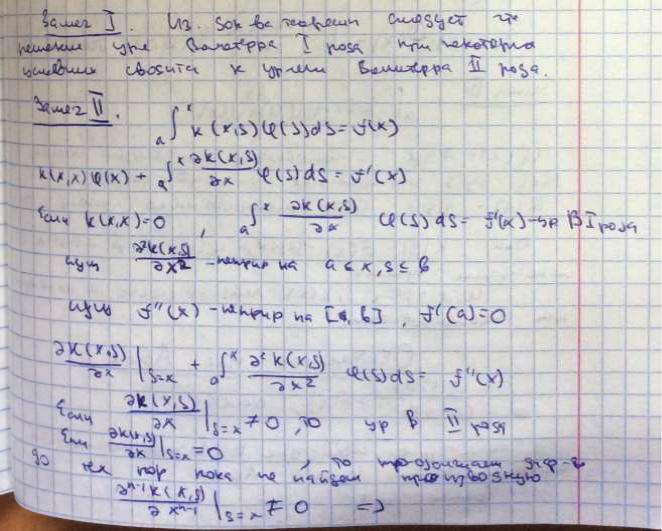 Замеч I. Из док-ва теоремы следует что
решение ур-я Вольтерра I рода при некоторых
условиях сводится к ур-ям Вольтерра II рода.
Замеч II.
∫ₐˣ K(x,s)φ(s)ds = f(x)
K(x,x)φ(x) + ∫ₐˣ ∂K(x,s)/∂x φ(s)ds = f'(x)
Если K(x,x)=0, ∫ₐˣ ∂K(x,s)/∂x φ(s)ds = f'(x) - ур В I рода
пусть ∂²K(x,s)/∂x² - непрер на a ≤ x,s ≤ b
пусть f''(x) - непрер на [a,b], f'(a)=0
∂K(x,s)/∂x |s=x + ∫ₐˣ ∂²K(x,s)/∂x² φ(s)ds = f''(x)
Если ∂K(x,s)/∂x |s=x ≠ 0, то ур В II рода
Если ∂K(x,s)/∂x |s=x = 0, то продолжаем диф-ь
до тех пор пока не найдем производную
∂ⁿ⁻¹K(x,s)/∂xⁿ⁻¹ |s=x ≠ 0 =>